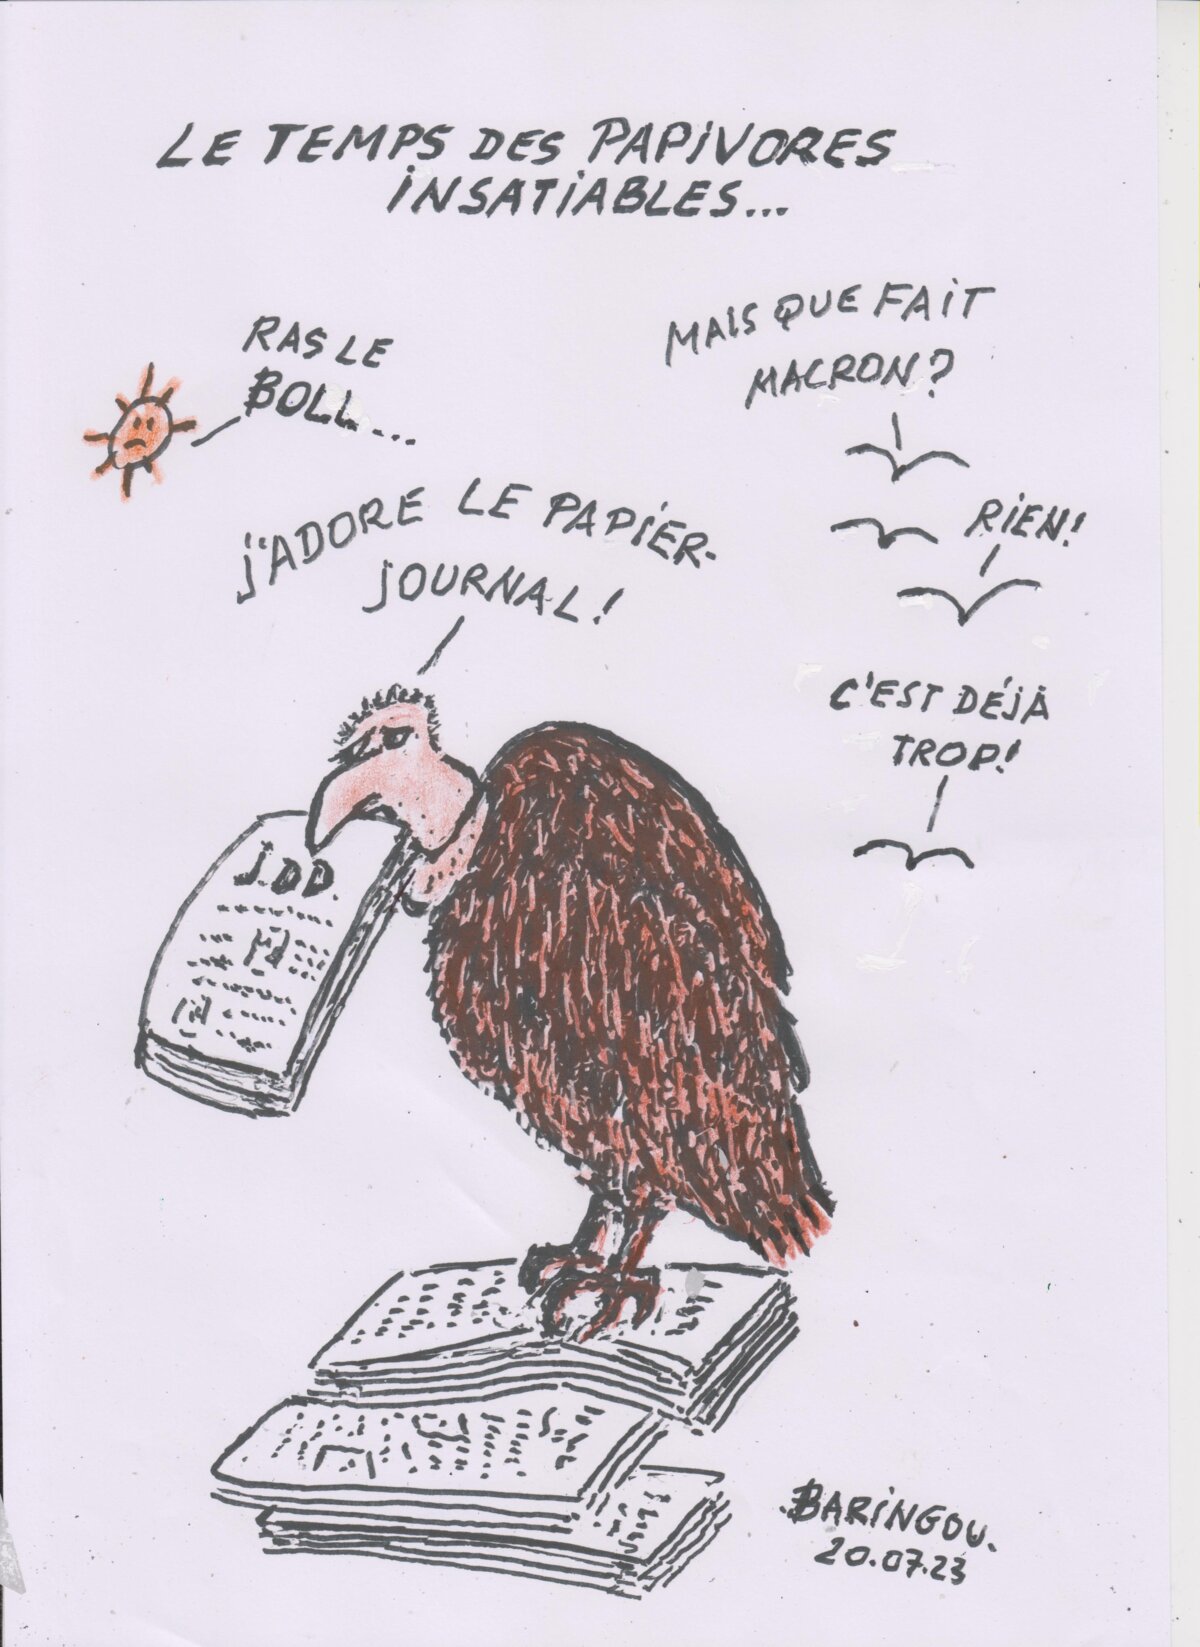 LE TEMPS DES PAPiVORES
iNSATiABLES...
RAS LE
BOLL...
MAIS QUE FAiT
MACRON?
RiEN!
J'ADORE LE PAPiER-
JOURNAL!
C'EST DÉJÀ
TROP!
J.DD.
BARiNGOU.
20.07.23